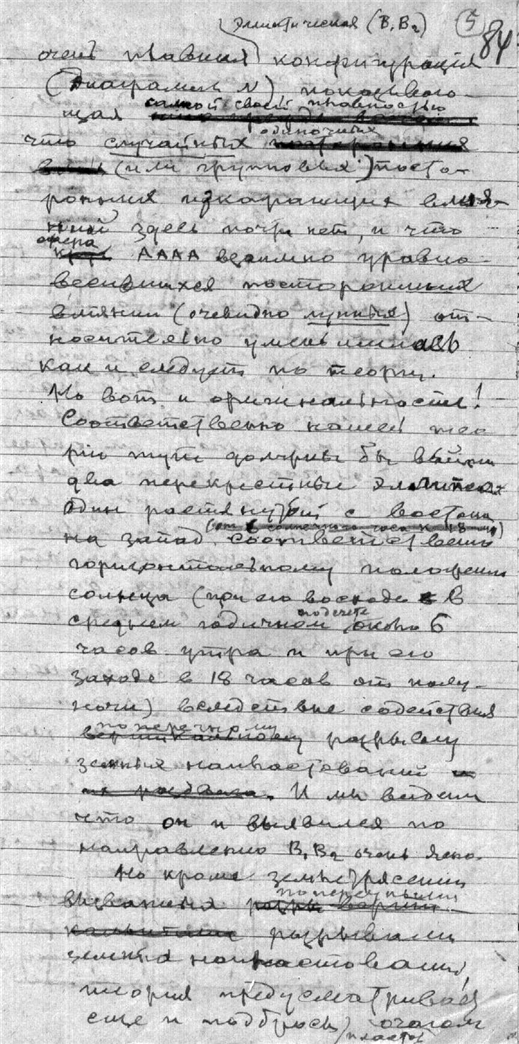 эллиптическая (B₁B₂) 5
84
очень правная конфигурация
(Диаграмма N) показываю-
щая самой своей правностью
что случайных одиночных
(или групповых) посто-
ронних искажающих влия-
ний здесь почти нет, и что
сфера АААА взаимно уравно-
весившихся посторонних
влияний (очевидно лунных) от-
носительно уменьшилась
как и следует по теории.
Но вот и оригинальности!
Соответственно нашей тео
рии тут должны бы выйти
два перекрестных эллипса:
Один растянутый с востока
на запад соответственно
горизонтальному положению
солнца (при его восходе в
среднем годичном подсчете около 6
часов утра и при его
заходе в 18 часов от полу-
ночи) вследствие содействия
поперечному разрыву
земных напластований
И мы видим
что он и выявился по
направлению B₁B₂ очень ясно.
Но кроме землетрясений
вызванных поперечными
разрывами
земных напластований,
теория предусматривает
еще и подбросы очагом
пластов